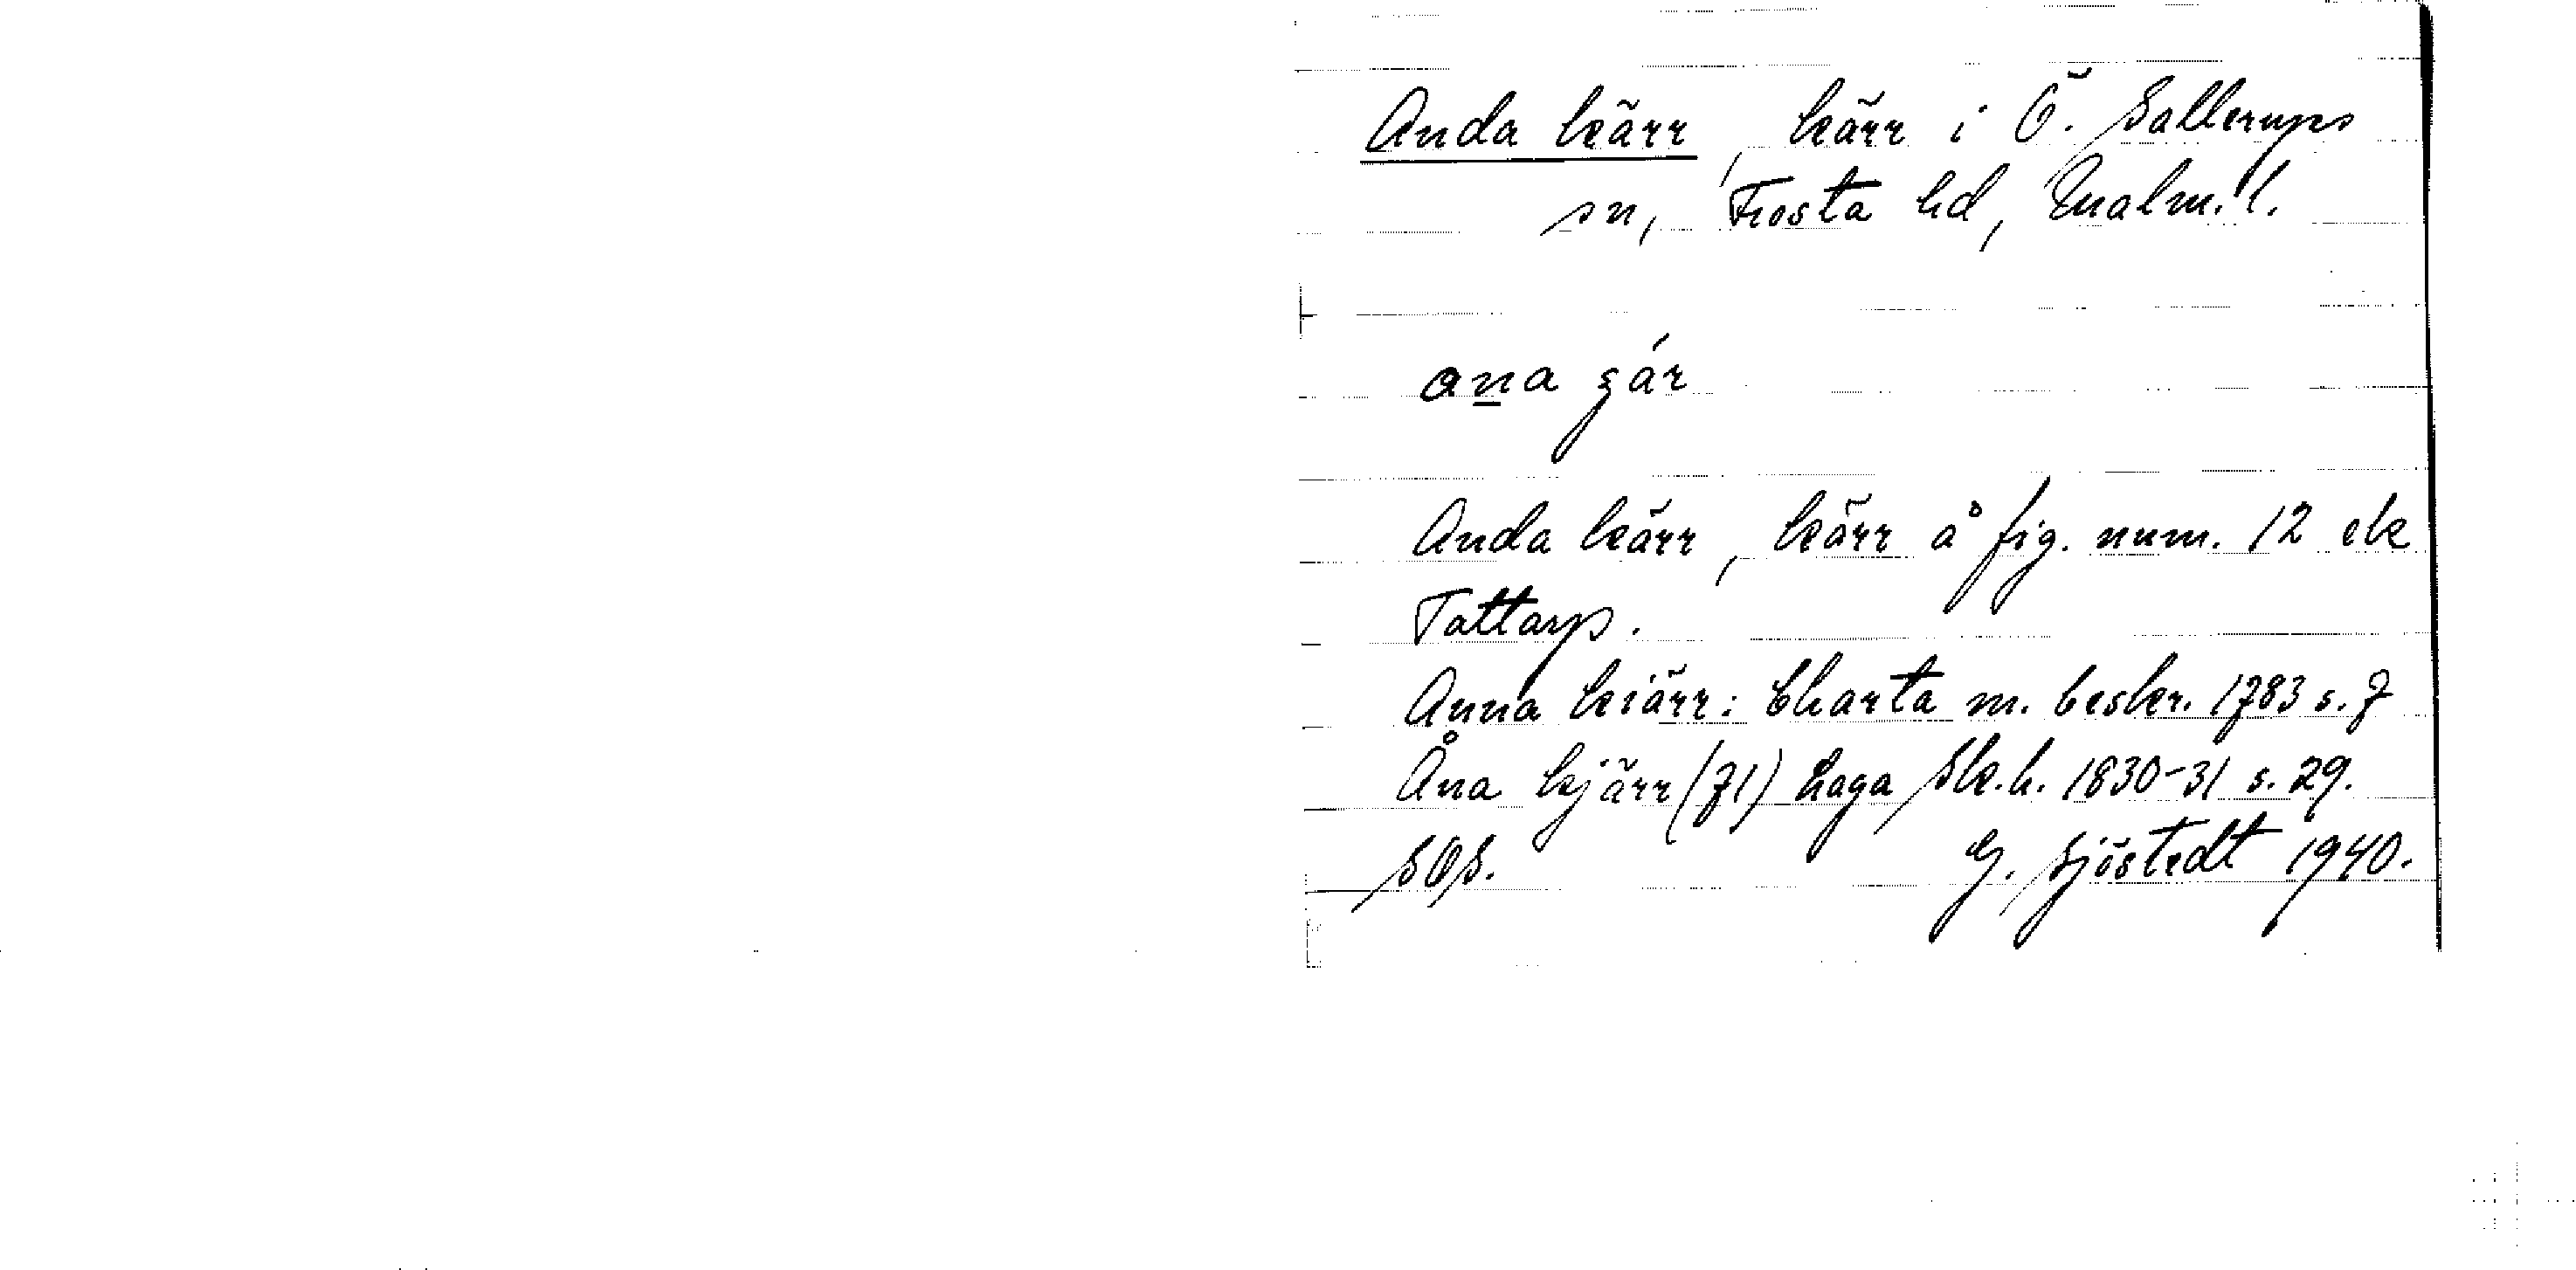 Anda kärr, kärr i Ö. Sallerups
sn, Frosta hd, Malm. l.
ana
Anda kärr, kärr å fig. num. 12 ek
Tattarp.
Anna kiärr: Charta m. beskr. 1783 s. 7
Åna kjärr (71) Laga Sk. h. 1830-31 s. 29.
SOS. G. Sjöstedt 1940.